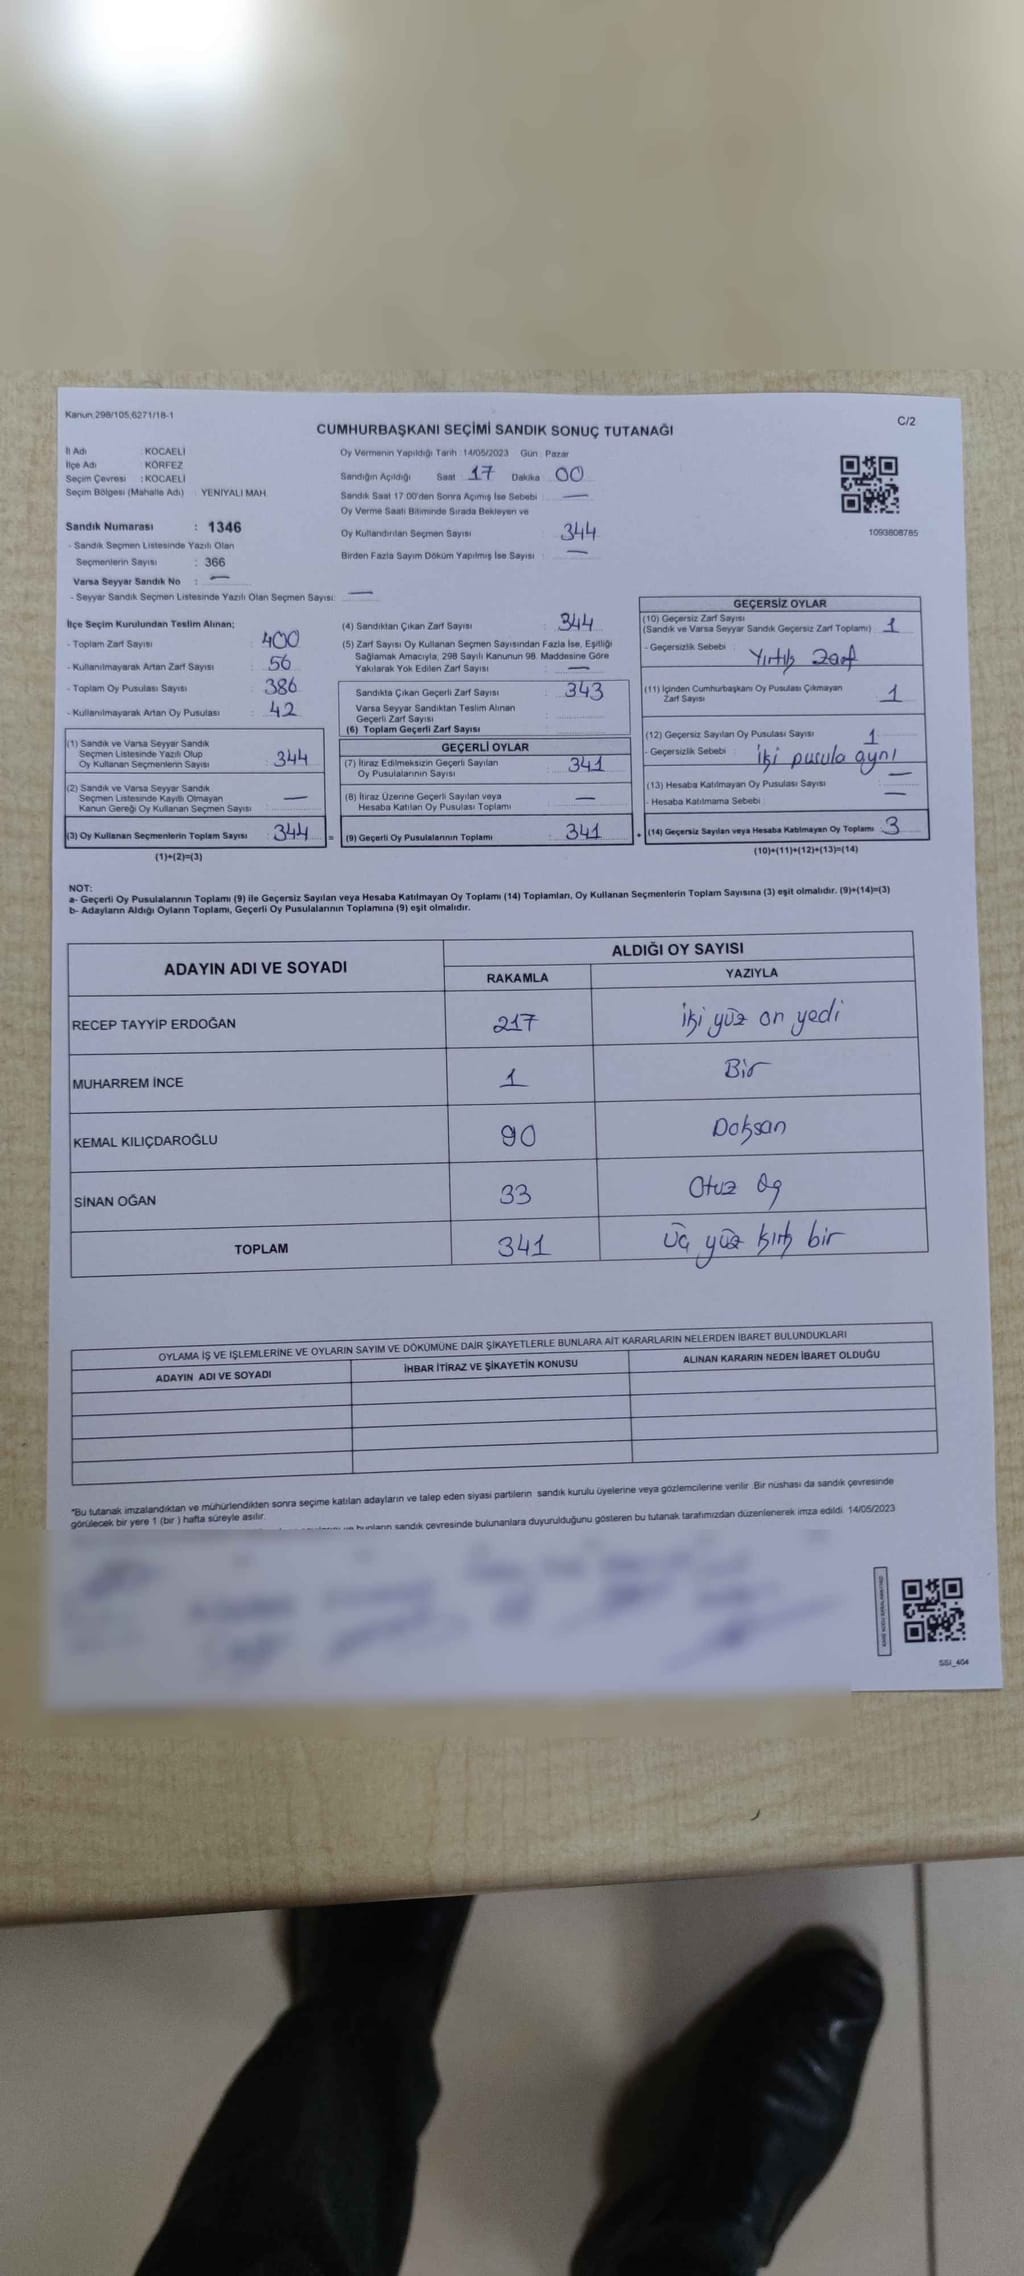 Kanun.298/105,6271/18-1
C/2
CUMHURBAŞKANI SEÇİMİ SANDIK SONUÇ TUTANAĞI
İl Adı : KOCAELİ
İlçe Adı : KÖRFEZ
Seçim Çevresi : KOCAELİ
Seçim Bölgesi (Mahalle Adı) YENİYALI MAH.
Sandık Numarası : 1346
- Sandık Seçmen Listesinde Yazılı Olan
Seçmenlerin Sayısı : 366
Varsa Seyyar Sandık No : —
- Seyyar Sandık Seçmen Listesinde Yazılı Olan Seçmen Sayısı: —
Oy Vermenin Yapıldığı Tarih : 14/05/2023 Gün : Pazar
Sandığın Açıldığı Saat 17 Dakika 00
Sandık Saat 17:00'den Sonra Açmış İse Sebebi : —
Oy Verme Saati Bitiminde Sırada Bekleyen ve
Oy Kullandırılan Seçmen Sayısı 344
Birden Fazla Sayım Döküm Yapılmış İse Sayısı : —
1093808785
İlçe Seçim Kurulundan Teslim Alınan;
- Toplam Zarf Sayısı : 400
- Kullanılmayarak Artan Zarf Sayısı : 56
- Toplam Oy Pusulası Sayısı : 386
- Kullanılmayarak Artan Oy Pusulası : 42
(1) Sandık ve Varsa Seyyar Sandık
Seçmen Listesinde Yazılı Olup
Oy Kullanan Seçmenlerin Sayısı : 344
(2) Sandık ve Varsa Seyyar Sandık
Seçmen Listesinde Kayıtlı Olmayan
Kanun Gereği Oy Kullanan Seçmen Sayısı —
(3) Oy Kullanan Seçmenlerin Toplam Sayısı : 344 =
(1)+(2)=(3)
(4) Sandıktan Çıkan Zarf Sayısı : 344
(5) Zarf Sayısı Oy Kullanan Seçmen Sayısından Fazla İse, Eşitliği
Sağlamak Amacıyla, 298 Sayılı Kanunun 98. Maddesine Göre
Yakılarak Yok Edilen Zarf Sayısı : —
Sandıkta Çıkan Geçerli Zarf Sayısı : 343
Varsa Seyyar Sandıktan Teslim Alınan
Geçerli Zarf Sayısı
(6) Toplam Geçerli Zarf Sayısı :
GEÇERLİ OYLAR
(7) İtiraz Edilmeksizin Geçerli Sayılan
Oy Pusulalarının Sayısı : 341
(8) İtiraz Üzerine Geçerli Sayılan veya
Hesaba Katılan Oy Pusulası Toplamı : —
(9) Geçerli Oy Pusulalarının Toplamı : 341 +
GEÇERSİZ OYLAR
(10) Geçersiz Zarf Sayısı
(Sandık ve Varsa Seyyar Sandık Geçersiz Zarf Toplamı) : 1
- Geçersizlik Sebebi : Yırtık Zarf
(11) İçinden Cumhurbaşkanı Oy Pusulası Çıkmayan
Zarf Sayısı 1
(12) Geçersiz Sayılan Oy Pusulası Sayısı : 1
- Geçersizlik Sebebi : iki pusula aynı
(13) Hesaba Katılmayan Oy Pusulası Sayısı : —
- Hesaba Katılmama Sebebi : —
(14) Geçersiz Sayılan veya Hesaba Katılmayan Oy Toplamı : 3
(10)+(11)+(12)+(13)=(14)
NOT:
a- Geçerli Oy Pusulalarının Toplamı (9) ile Geçersiz Sayılan veya Hesaba Katılmayan Oy Toplamı (14) Toplamları, Oy Kullanan Seçmenlerin Toplam Sayısına (3) eşit olmalıdır. (9)+(14)=(3)
b- Adayların Aldığı Oyların Toplamı, Geçerli Oy Pusulalarının Toplamına (9) eşit olmalıdır.
ADAYIN ADI VE SOYADI
ALDIĞI OY SAYISI
RAKAMLA YAZIYLA
RECEP TAYYİP ERDOĞAN 217 iki yüz on yedi
MUHARREM İNCE 1 Bir
KEMAL KILIÇDAROĞLU 90 Doksan
SİNAN OĞAN 33 Otuz üç
TOPLAM 341 üç yüz kırk bir
OYLAMA İŞ VE İŞLEMLERİNE VE OYLARIN SAYIM VE DÖKÜMÜNE DAİR ŞİKAYETLERLE BUNLARA AİT KARARLARIN NELERDEN İBARET BULUNDUKLARI
ADAYIN ADI VE SOYADI İHBAR İTİRAZ VE ŞİKAYETİN KONUSU ALINAN KARARIN NEDEN İBARET OLDUĞU
*Bu tutanak imzalandıktan ve mühürlendikten sonra seçime katılan adayların ve talep eden siyasi partilerin sandık kurulu üyelerine veya gözlemcilerine verilir. Bir nüshası da sandık çevresinde
görülecek bir yere 1 (bir ) hafta süreyle asılır.
ve bunların sandık çevresinde bulunanlara duyurulduğunu gösteren bu tutanak tarafımızdan düzenlenerek imza edildi. 14/05/2023
SSİ_404